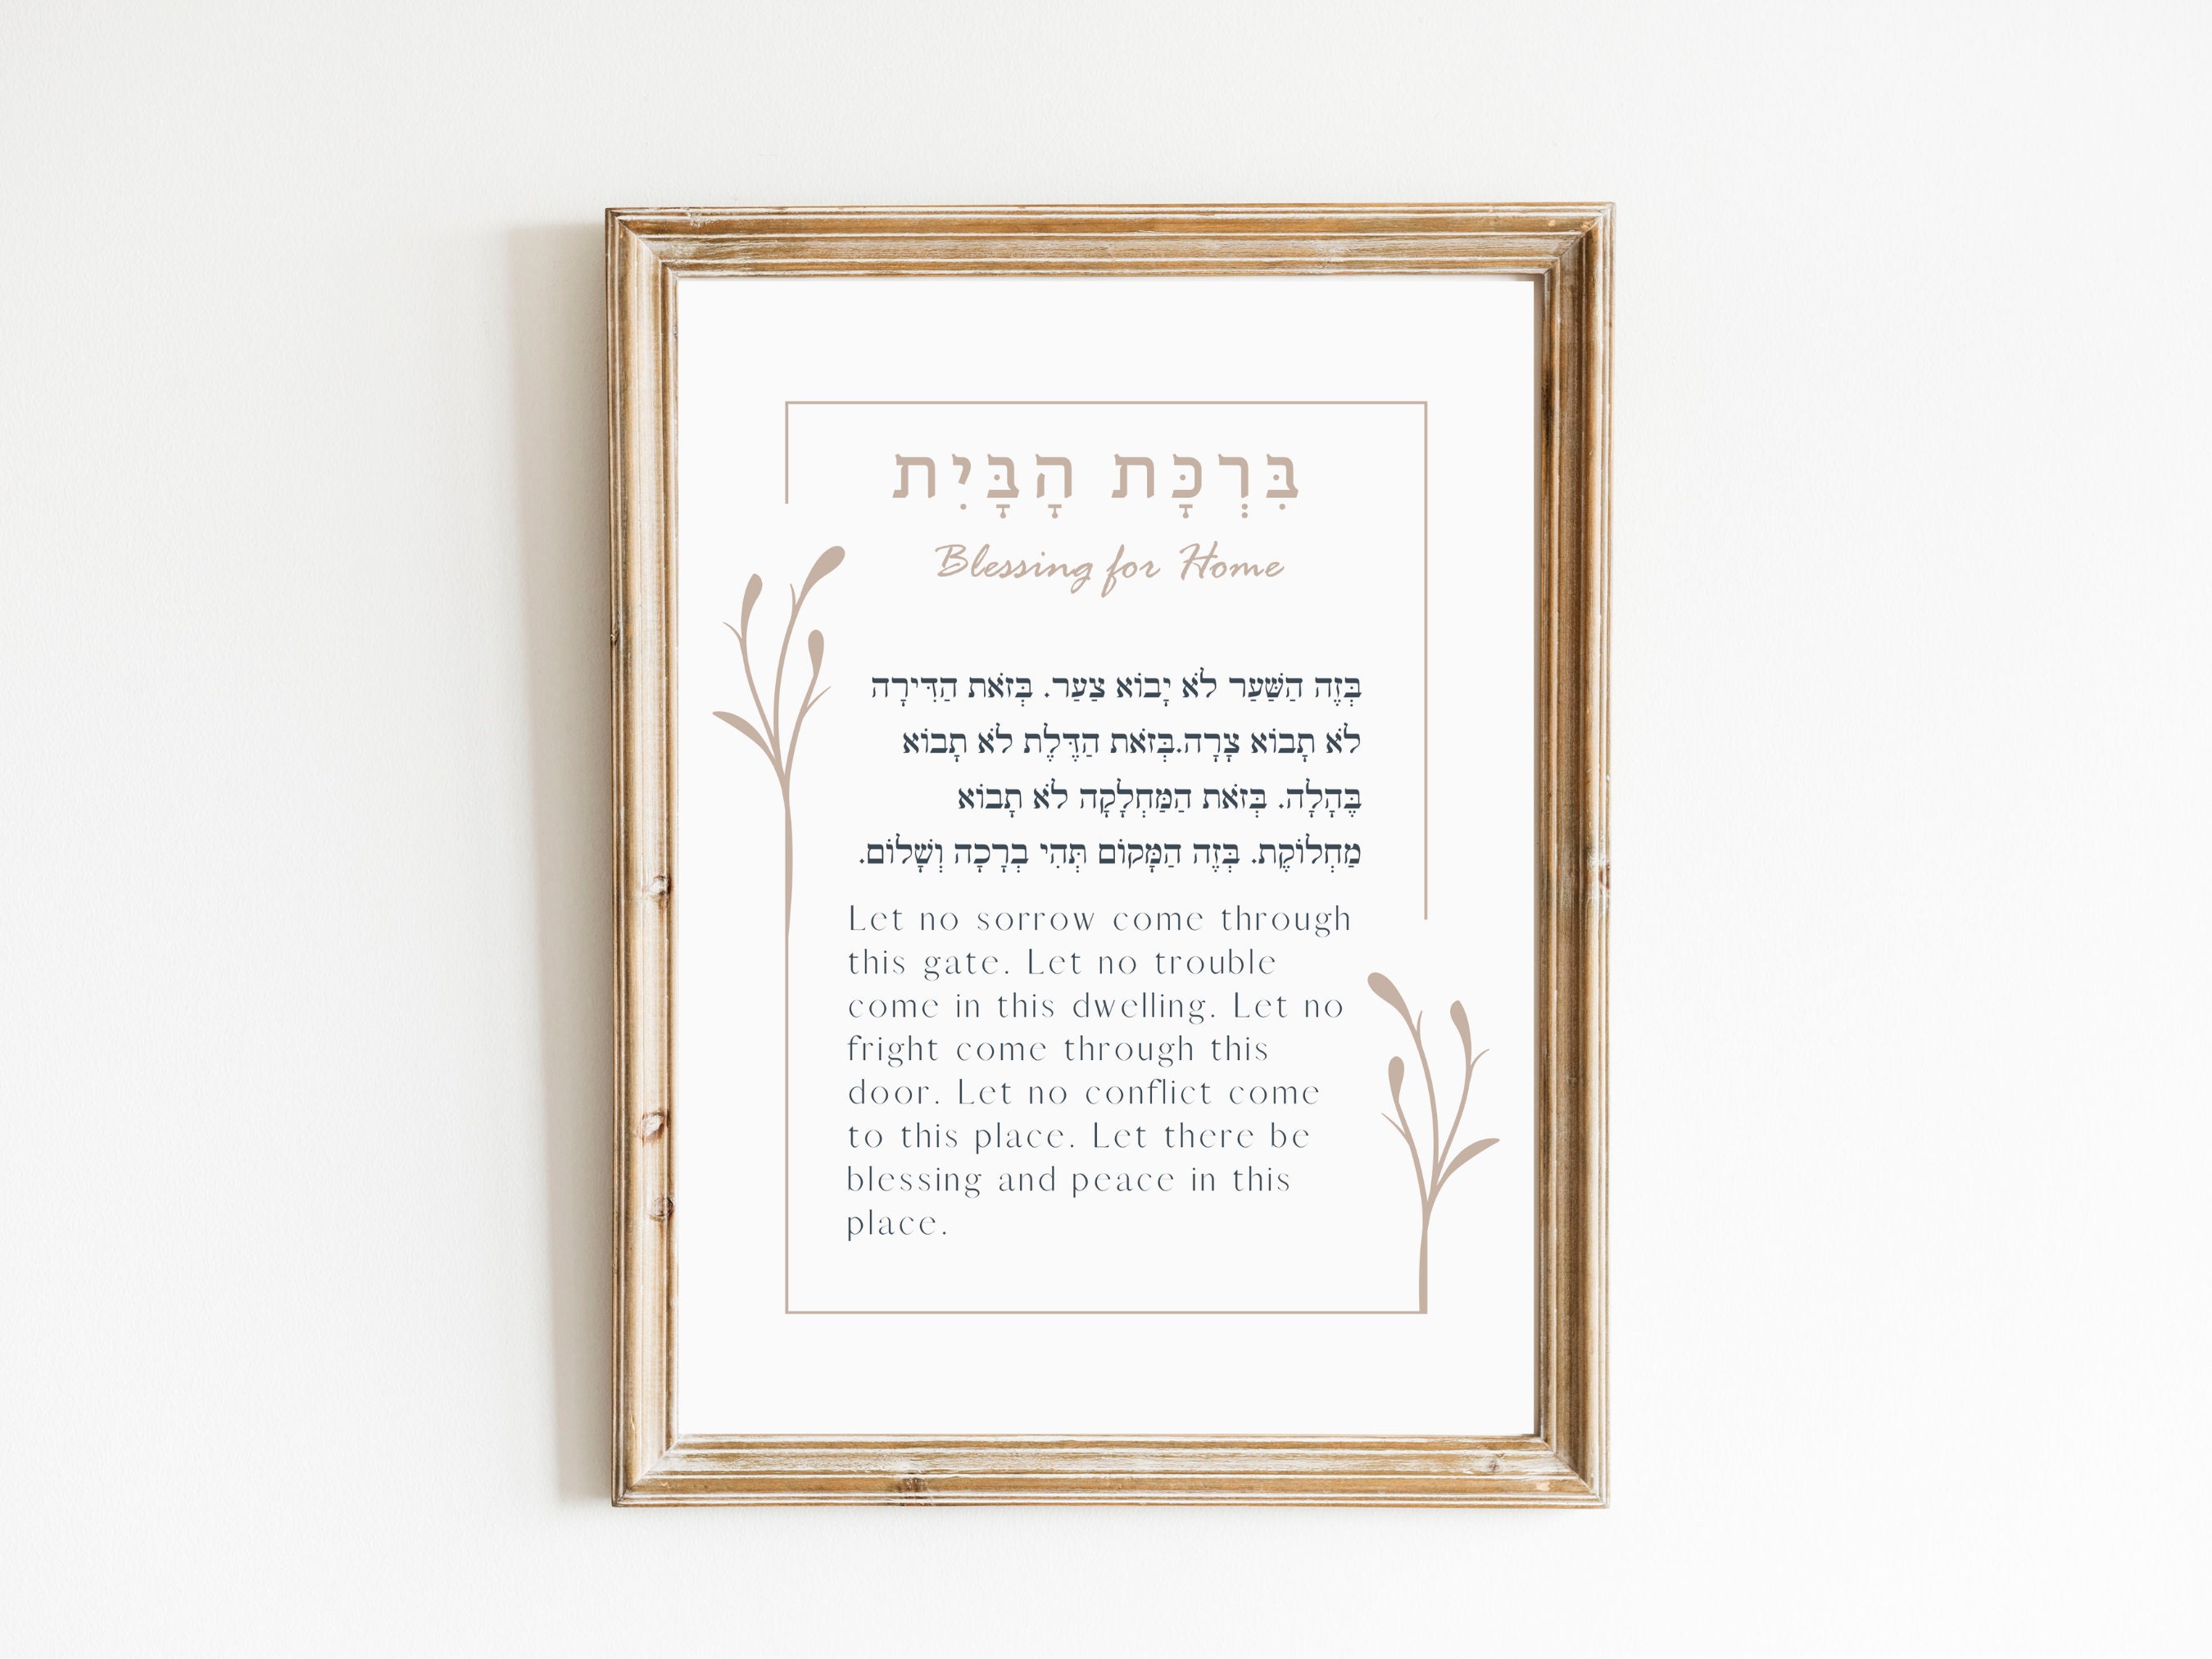 בִּרְכָּת הָבָּיִת
Blessing for Home
בְּזֶה הַשַּׁעַר לֹא יָבוֹא צַעַר. בְּזֹאת הַדִּירָה
לֹא תָבוֹא צָרָה.בְּזֹאת הַדֶּלֶת לֹא תָבוֹא
בֶּהָלָה. בְּזֹאת הַמַּחְלָקָה לֹא תָבוֹא
מַחְלוֹקֶת. בְּזֶה הַמָּקוֹם תְּהִי בְרָכָה וְשָׁלוֹם.
Let no sorrow come through
this gate. Let no trouble
come in this dwelling. Let no
fright come through this
door. Let no conflict come
to this place. Let there be
blessing and peace in this
place.